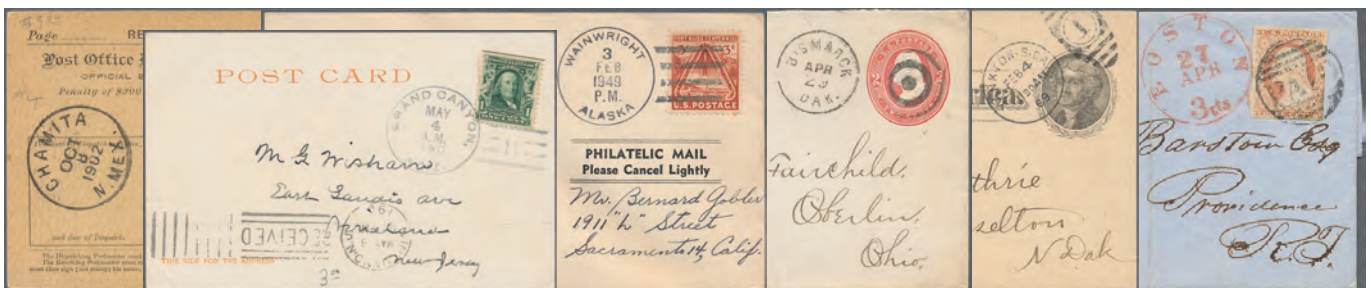 Page
RE
Post Office
OFFICIAL
Penalty of $300
CHAMITA
OCT
8
1902
N. MEX.
and date of Dispatch.
POST CARD
GRAND CANYON,
MAY
4
A.M.
M. G. Wisham
East Landis ave
Vineland
New Jersey
RECEIVED
THIS SIDE FOR THE ADDRESS
3a
WAINWRIGHT
3
FEB
1949
P.M.
ALASKA
FORT BLISS CENTENNIAL
3¢
U.S. POSTAGE
PHILATELIC MAIL
Please Cancel Lightly
Mr. Bernard Gobler
1911 "L" Street
Sacramento 14, Calif.
BISMARCK
APR
23
DAK.
U.S. POSTAGE
2
Fairchild.
Oberlin.
Ohio.
1
FEB 4
thrie
selton
N. Dak
BOSTON
27
APR
3 cts
U.S. POSTAGE
Barstow Esq
Providence
R.I.